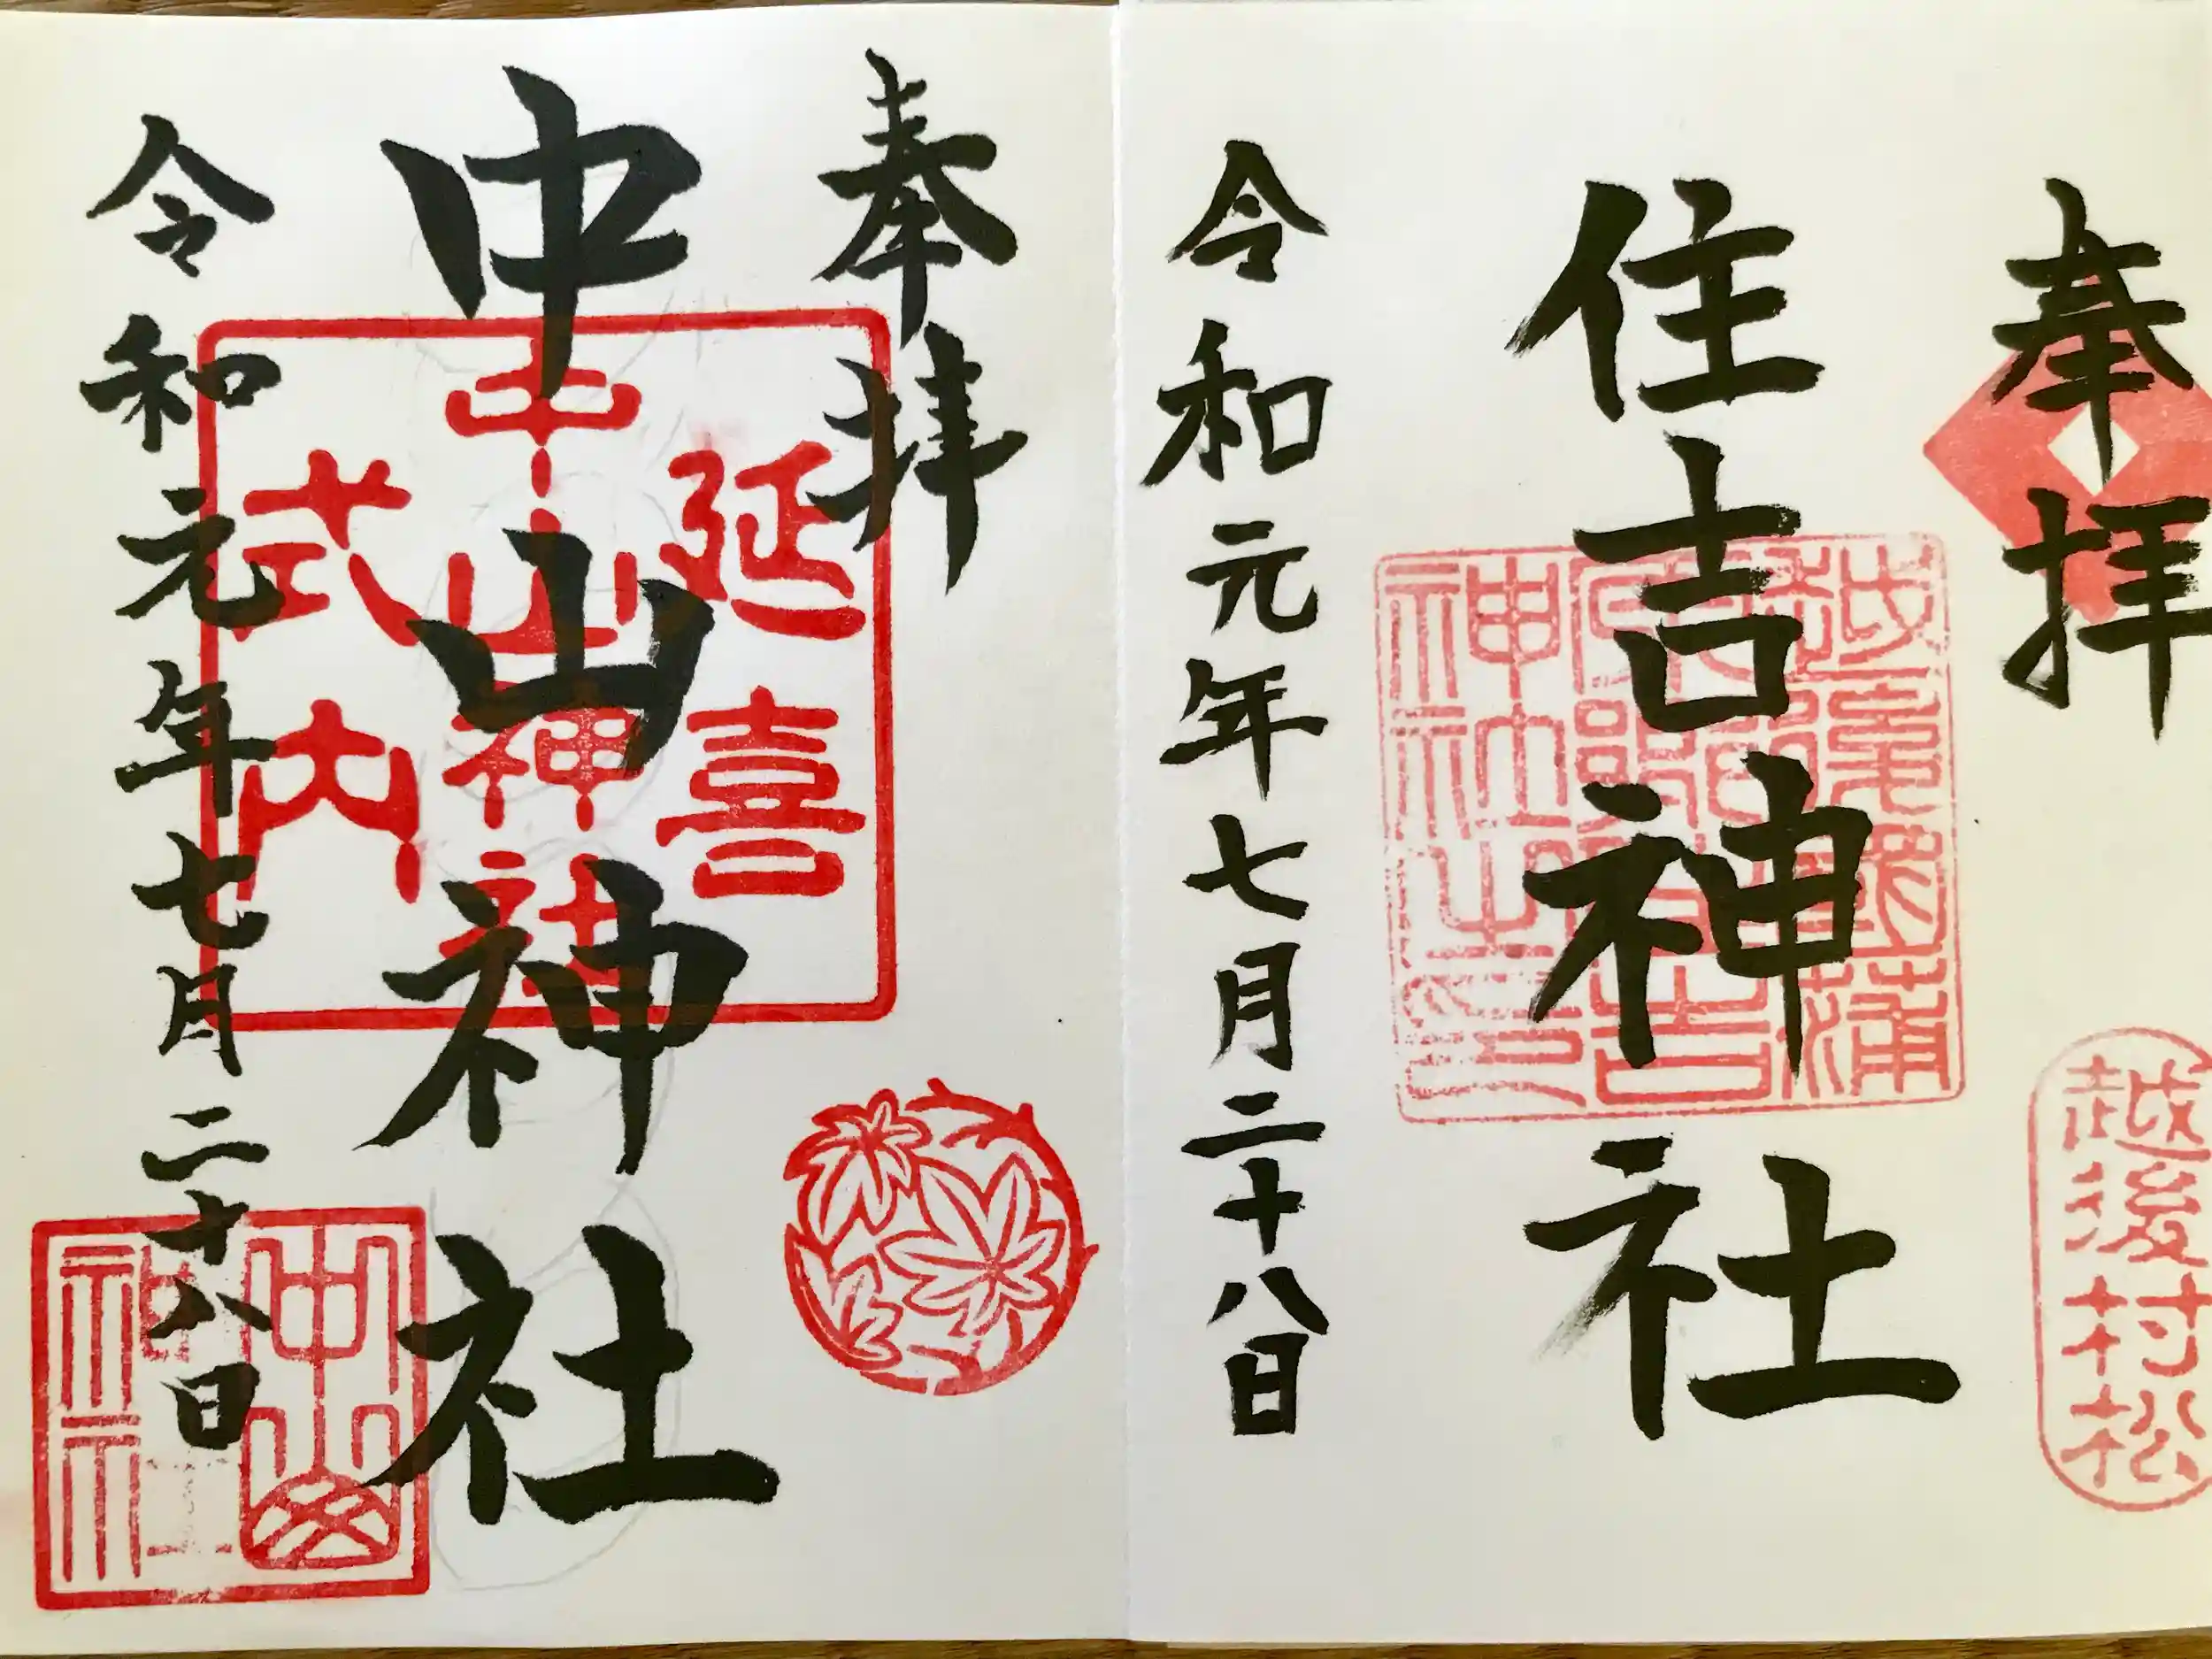 奉拝
住吉神社
令和元年七月二十八日
越後村松
奉拝
中山神社
令和元年七月二十八日
延喜
中山神社
式内
中山
神社